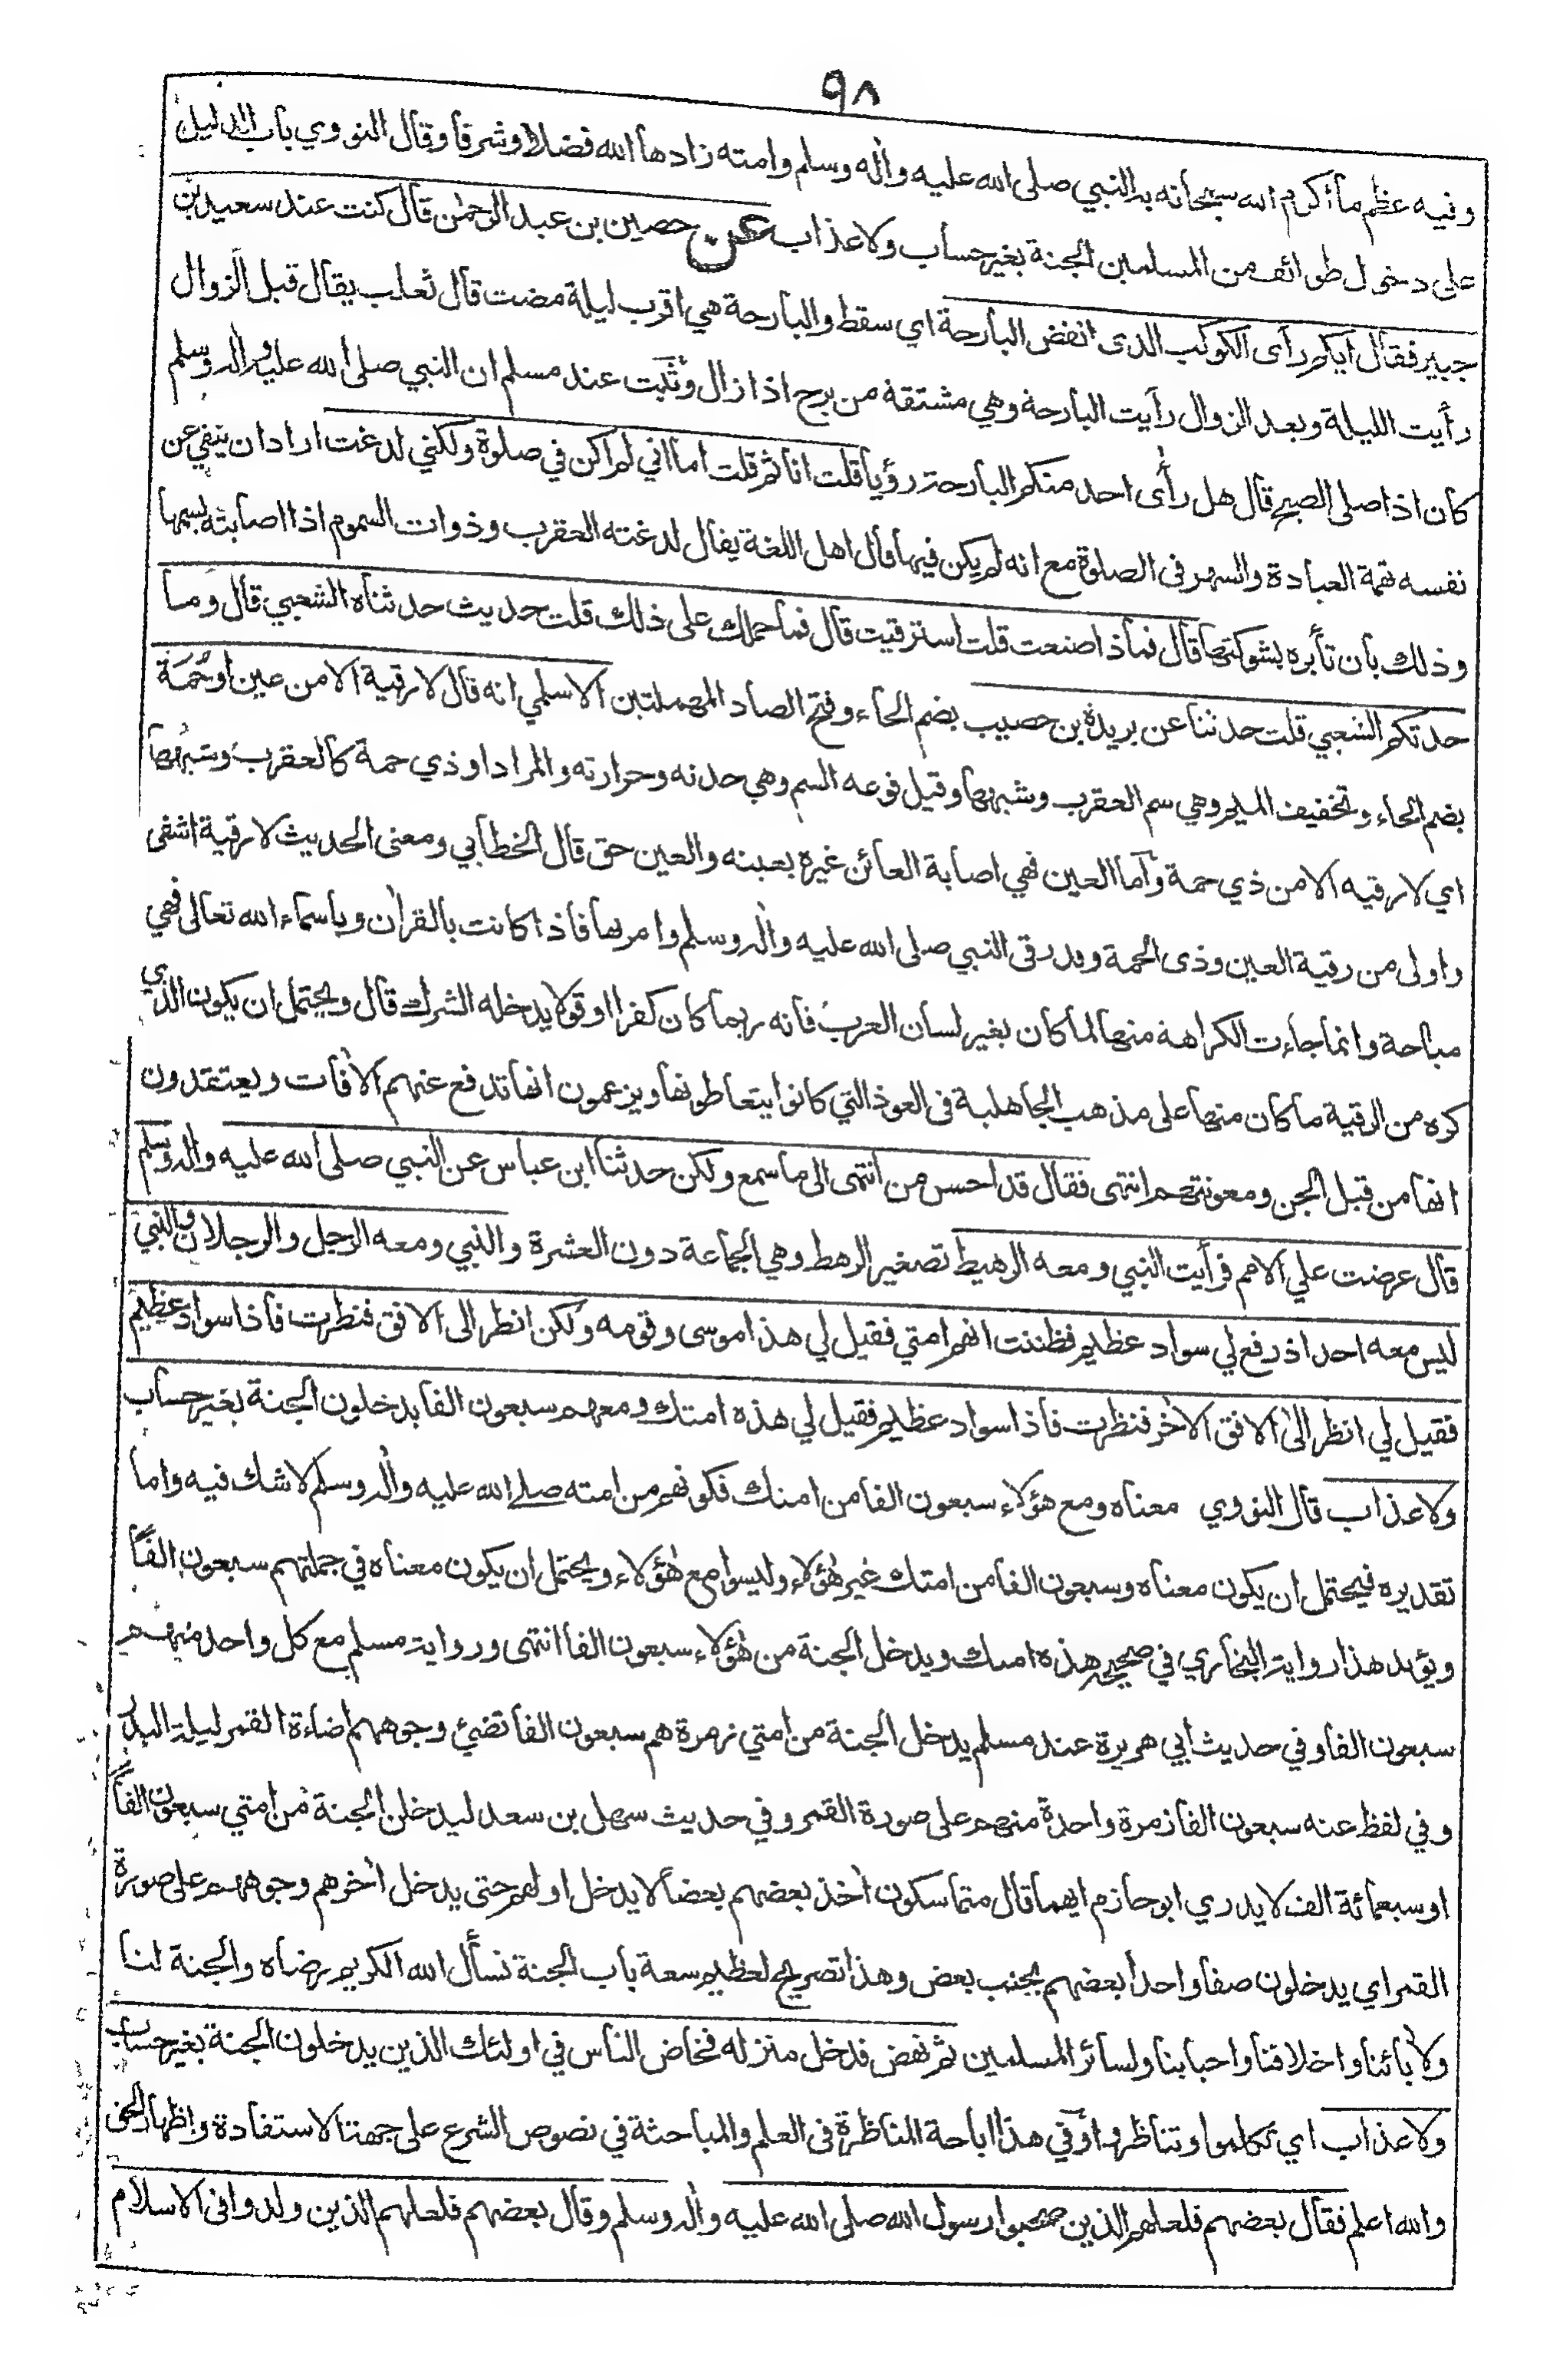 ٩٨
وفيه عظم ما أكرم الله سبحانه به النبي صلى الله عليه وآله وسلم وامته زادها الله فضلا وشرفا وقال النووي باب الدليل
على دخول طوائف من المسلمين الجنة بغير حساب ولا عذاب عن حصين بن عبد الرحمن قال كنت عند سعيد بن
جبير فقال ايكم رأى الكوكب الذى انفض البارحة اي سقط والبارحة هي اقرب ليلة مضت قال ثعلب يقال قبل الزوال
رأيت الليلة وبعد الزوال رأيت البارحة وهي مشتقة من برح اذا زال وثبت عند مسلم ان النبي صلى الله عليه واله وسلم
كان اذا صلى الصبح قال هل رأى احد منكم البارحة رؤيا قلت انا ثم قلت اما اني لم اكن في صلوة ولكني لدغت اراد ان ينفي عن
نفسه تهمة العبادة والسهر فى الصلوة مع انه لم يكن فيها قال اهل اللغة يقال لدغته العقرب وذوات السموم اذا اصابته بسمها
وذلك بان تأبره بشوكتها قال فماذا صنعت قلت استرقيت قال فما حملك على ذلك قلت حديث حدثناه الشعبي قال وما
حدثكم الشعبي قلت حدثنا عن بريدة بن حصيب بضم الحاء وفتح الصاد المهملتين الاسلمي انه قال لا رقية الا من عين او حُمَة
بضم الحاء وتخفيف الميم وهي سم العقرب وشبهها وقيل فوعه السم وهي حدته وحرارته والمراد او ذي حمة كالعقرب وشبهها
اي لا رقيه الا من ذي حمة وأما العين فهي اصابة العائن غيره بعينه والعين حق قال الخطابي ومعنى الحديث لا رقية اشفى
واولى من رقية العين وذى الحمة وقد رقى النبي صلى الله عليه واٰله وسلم وامر بها فاذا كانت بالقراٰن وباسماء الله تعالى فهي
مباحة وانما جاءت الكراهة منها لما كان بغير لسان العرب فانه ربما كان كفرا او قولا يدخله الشرك قال ويحتمل ان يكون الذي
كره من الرقية ما كان منها على مذهب الجاهلية فى العوذ التي كانوا يتعاطونها ويزعمون انها تدفع عنهم الاٰفات ويعتقدون
انها من قبل الجن ومعونتهم انتهى فقال قد احسن من انتهى الى ما سمع ولكن حدثنا ابن عباس عن النبي صلى الله عليه واله وسلم
قال عرضت علي الامم فرأيت النبي ومعه الرهيط تصغير الرهط وهي الجماعة دون العشرة والنبي ومعه الرجل والرجلان والنبي
ليس معه احد اذ رفع لي سواد عظيم فظننت انهم امتي فقيل لي هذا موسى وقومه ولكن انظر الى الافق فنظرت فاذا سواد عظيم
فقيل لي انظر الى الافق الاٰخر فنظرت فاذا سواد عظيم فقيل لي هذه امتك ومعهم سبعون الفا يدخلون الجنة بغير حساب
ولا عذاب قال النووي معناه ومع هؤلاء سبعون الفا من امتك فكونهم من امته صلى الله عليه واٰله وسلم لا شك فيه واما
تقديره فيحتمل ان يكون معناه وسبعون الفا من امتك غير هٰؤلاء وليسوا مع هٰؤلاء ويحتمل ان يكون معناه في جملتهم سبعون الفًا
ويؤيد هذا رواية البخاري في صحيحه هذه امتك ويدخل الجنة من هٰؤلاء سبعون الفا انتهى ورواية مسلم مع كل واحد منهم
سبعون الفا وفي حديث ابي هريرة عند مسلم يدخل الجنة من امتي زمرة هم سبعون الفا تضئ وجوههم اضاءة القمر ليلة البدر
وفي لفظ عنه سبعون الفا زمرة واحدة منهم على صورة القمر وفي حديث سهل بن سعد ليدخلن الجنة من امتي سبعون الفًا
او سبعمائة الف لا يدري ابو حازم ايهما قال متماسكون اٰخذ بعضهم بعضا لا يدخل اولهم حتى يدخل اٰخرهم وجوههم على صورة
القمر اي يدخلون صفا واحدا بعضهم بجنب بعض وهذا تصريح لعظيم سعة باب الجنة نسأل الله الكريم رضاه والجنة لنا
ولاٰبائنا واخلافنا واحبابنا ولسائر المسلمين ثم نهض فدخل منزله فخاض الناس في اولئك الذين يدخلون الجنة بغير حساب
ولا عذاب اي تكلموا وتناظروا وفي هذا اباحة المناظرة فى العلم والمباحثة في نصوص الشرع على جهة الاستفادة واظهار الحق
والله اعلم فقال بعضهم فلعلهم الذين صحبوا رسول الله صلى الله عليه واٰله وسلم وقال بعضهم فلعلهم الذين ولدوا فى الاسلام